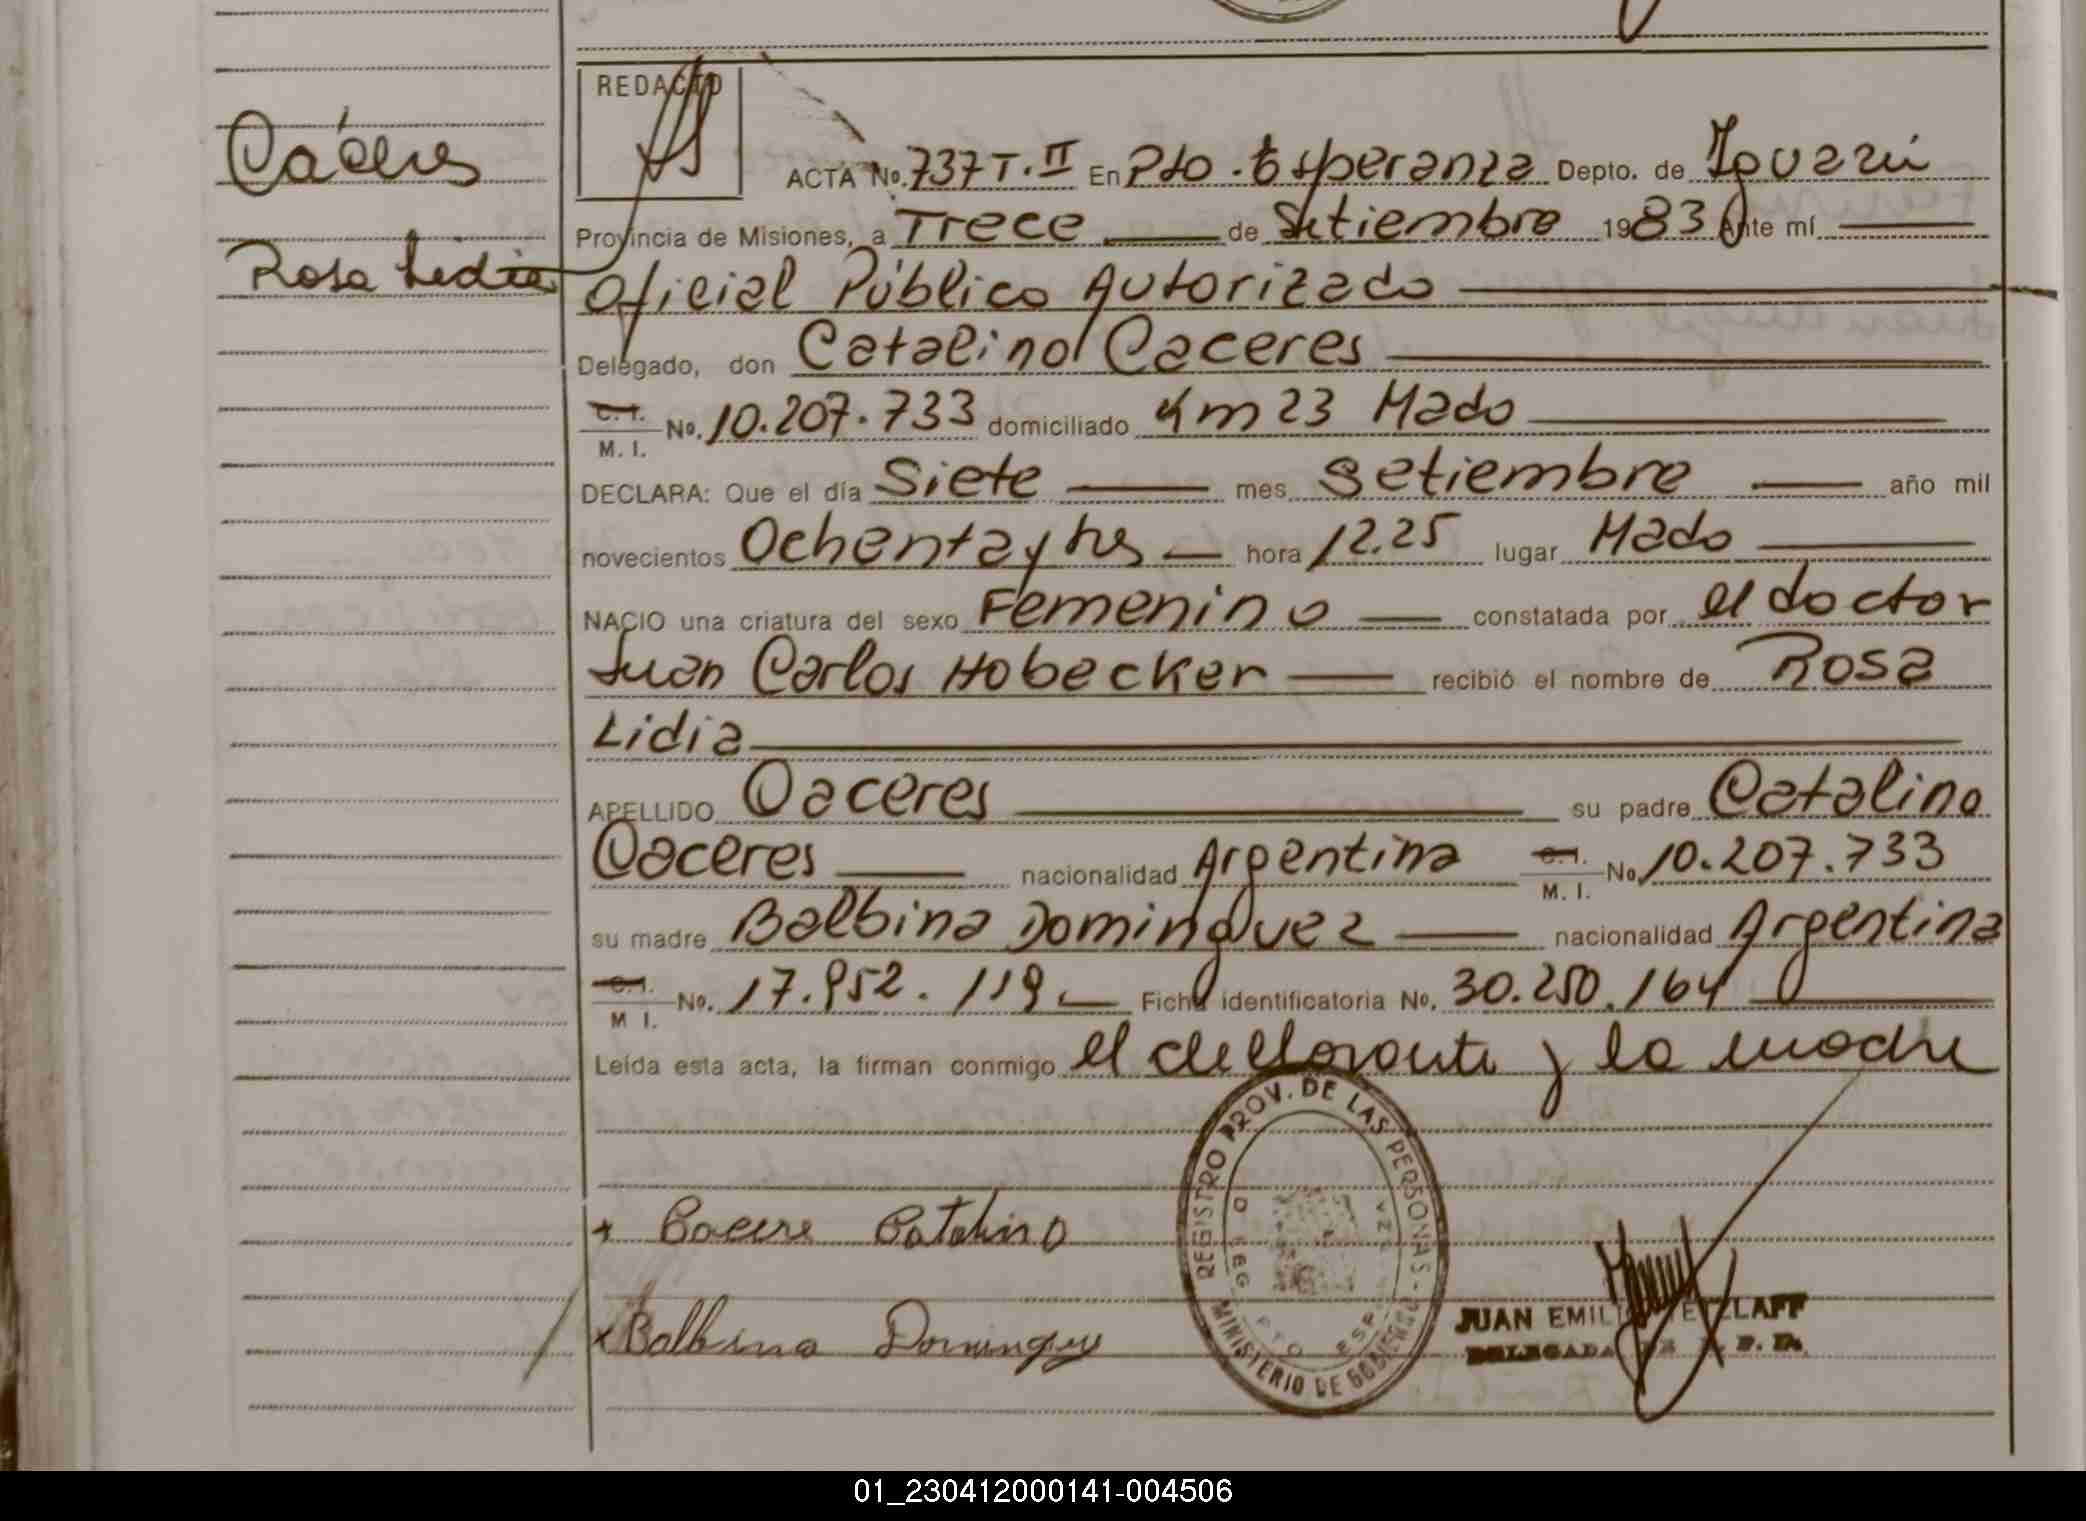 Cáceres
Rosa Lidia
REDACTO
ACTA No. 737 T. II En Pto. Esperanza Depto. de Iguazú
Provincia de Misiones, a Trece de Setiembre 1983 Ante mí
Oficial Público Autorizado
Delegado, don Catalino Caceres
C. I.
M. I. No. 10.207.733 domiciliado Km 23 Mado
DECLARA: Que el día Siete mes Setiembre año mil
novecientos Ochenta y tres hora 12.25 lugar Mado
NACIO una criatura del sexo Femenino constatada por el doctor
Juan Carlos Hobecker recibió el nombre de Rosa
Lidia
APELLIDO Caceres su padre Catalino
Caceres nacionalidad Argentina C. I.
M. I. No. 10.207.733
su madre Balbina Dominguez nacionalidad Argentina
C. I.
M I. No. 17.952.119 Ficha identificatoria No. 30.250.164
Leída esta acta, la firman conmigo el declarante y la madre
REGISTRO PROV. DE LAS PERSONAS - MINISTERIO DE GOBIERNO
+ Cacere Catalino
x Balbina Dominguez
JUAN EMILI
01_230412000141-004506